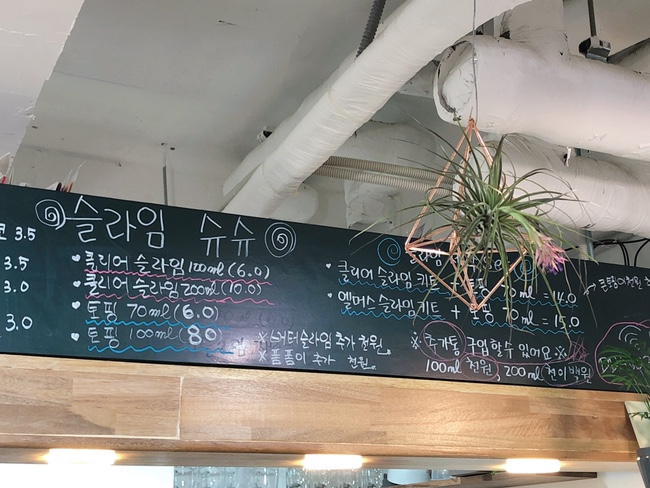 3.5
3.5
3.0
3.0
슬라임 슈슈
클리어 슬라임 100ml (6.0)
클리어 슬라임 200ml (10.0)
토핑 70ml (6.0)
토핑 100ml (8.0)
※ 버터슬라임 추가 천원
※ 폼폼이 추가 천원
클리어 슬라임키트 + = 14.0
엘머스 슬라임키트 + 토핑 70ml = 15.0
※ 추가통 구입할수 있어요 ※
100ml 천원, 200ml 천이백원